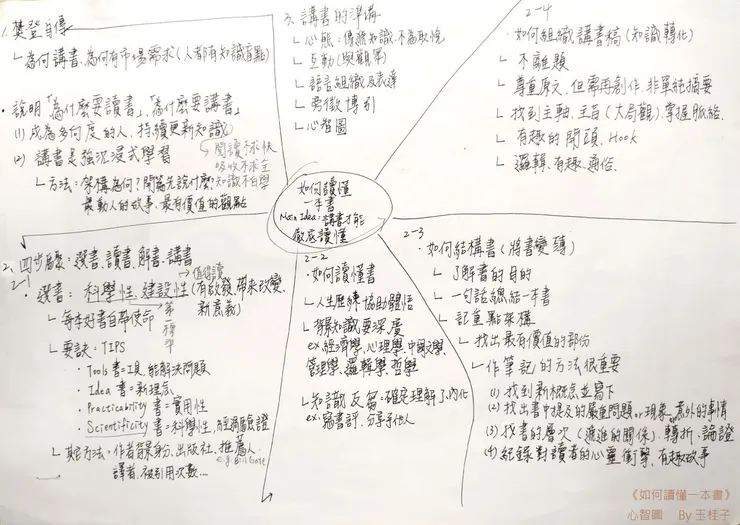 1. 樊登自傳
└ 為何講書, 為何有市場需求(人都有知識盲點)
• 說明「為什麼要讀書」、「為什麼要講書」
(1) 成為多向度的人, 持續更新知識
(2) 講書是強沉浸式學習
閱讀不求快
吸收不求全
知識不白學
└ 方法: 架構為何? 開篇先說什麼?
最動人的故事、最有價值的觀點
3. 講書的準備
└ 心態: 傳遞知識.不為取悅
└ 互動(與觀眾)
└ 語言組織及表達
└ 旁徵博引
└ 心智圖
2-4
• 如何組織講書稿(知識轉化)
└ 不離題
└ 尊重原文, 但需再創作, 非單純摘要
└ 找到主軸、主旨(大局觀), 掌握脈絡.
└ 有趣的開頭. Hook
└ 邏輯、有趣、通俗.
如何讀懂
一本書
Main Idea: 講書才能
徹底讀懂
2. 四步驟: 選書、讀書、解書、講書
2-1
→ 值得讀
• 選書: 科學性, 建設性(有啟發, 帶來改變,
新意義)
└ 每本好書自帶使命
第一標準
└ 要訣: TIPS
• Tools 書=工具, 能解決問題
• Idea 書=新理念
• Practicability 書=實用性
• Scientificity 書=科學性,
└ 其它方法: 作者背景身份、出版社、推薦人
e.g. Bill Gate
譯者、被引用次數...
2-2
• 如何讀懂書
└ 人生歷練協助體悟
└ 背景知識要深廣
ex. 經濟學, 心理學, 中國文學,
管理學, 邏輯學, 哲學
└ 知識反芻: 確定理解了、內化
ex. 寫書評, 分享予他人
2-3
• 如何結構書(將書變薄)
└ 了解書的目的
└ 一句話總結一本書
└ 記重點架構
└ 找出最有價值的部份
└ 作筆記的方法很重要
(1) 找到新概念並寫下
(2) 找出書中提及的嚴重問題or現象, 意外的事情
(3) 找書的層次(遞進的關係)、轉折、論證
(4) 紀錄對讀者的心靈衝擊、有趣故事
《如何讀懂一本書》
心智圖 By 玉桂子